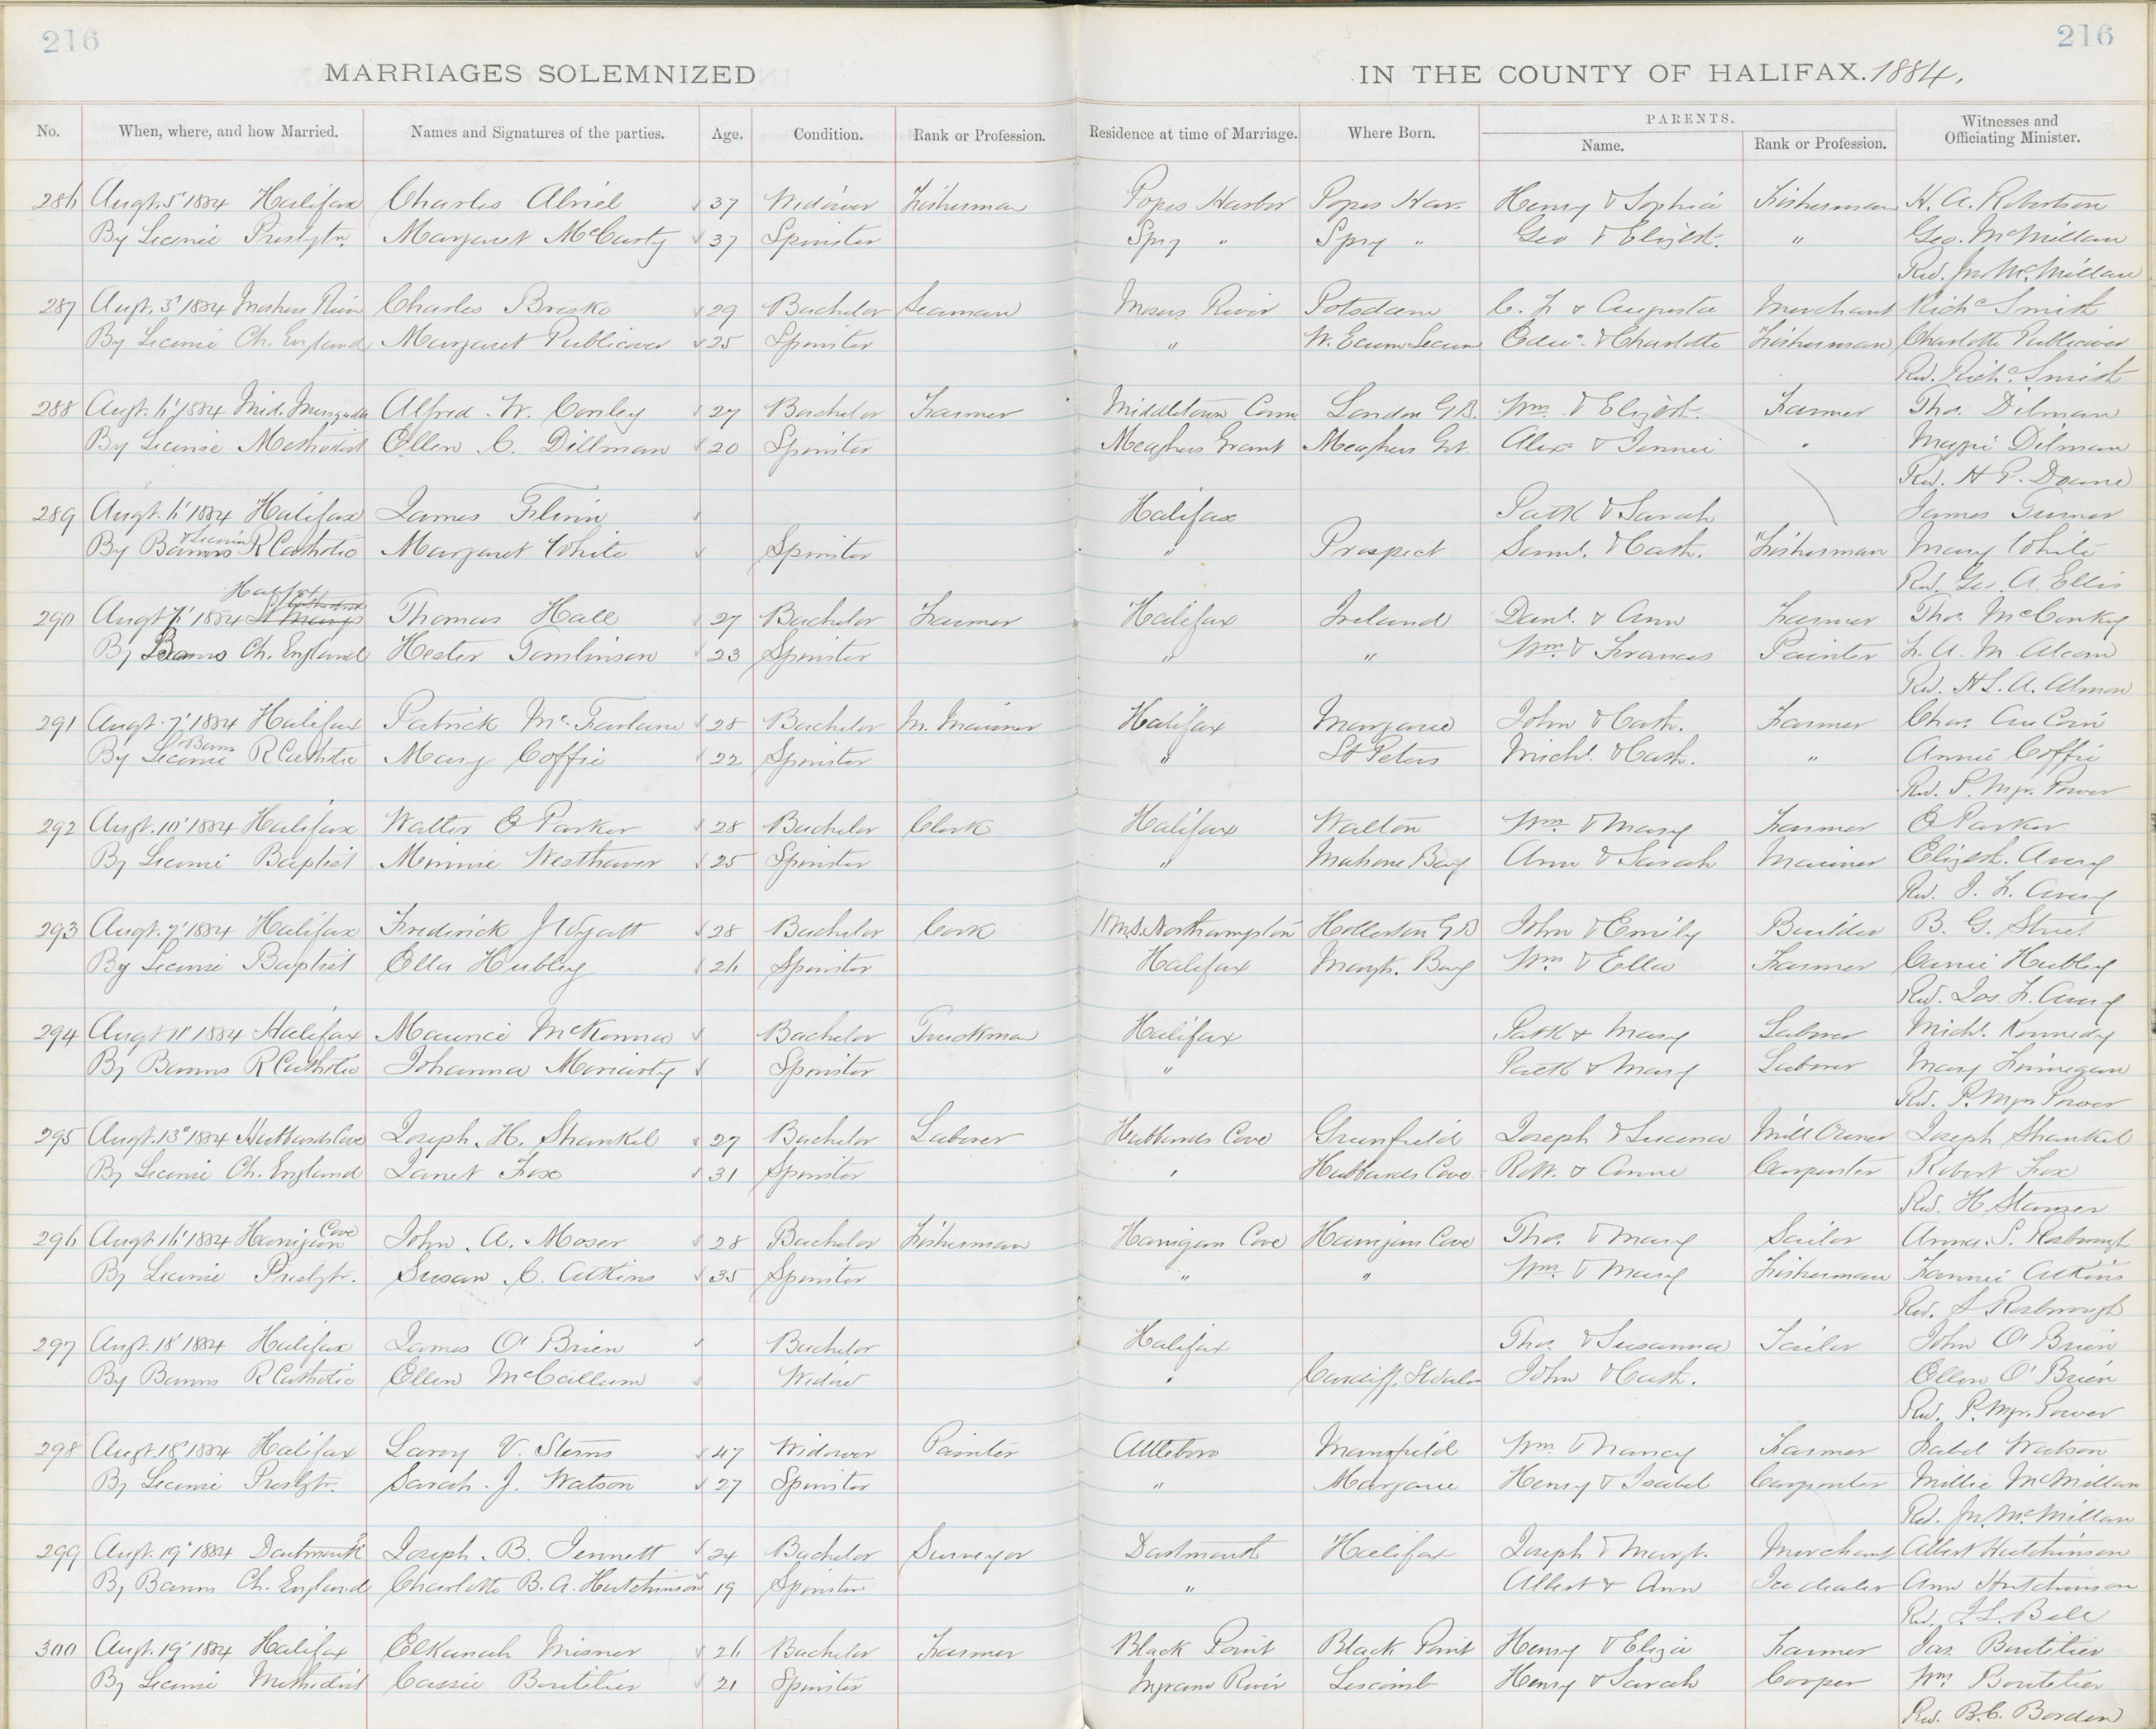 216
216
MARRIAGES SOLEMNIZED
IN THE COUNTY OF HALIFAX. 1884.
No. When, where, and how Married. Names and Signatures of the parties. Age. Condition. Rank or Profession. Residence at time of Marriage. Where Born. PARENTS. Witnesses and Officiating Minister.
Name. Rank or Profession.
286 Augt. 5' 1884 Halifax Charles Abriel 37 Widower Fisherman Popes Harbor Popes Har. Henry & Sophia Fisherman H. A. Robertson
By License Presbytn. Margaret McCarty 37 Spinster Spry " Spry " Geo & Elizbt. " Geo. McMillan
Rev. Jn. McMillan
287 Augt. 3' 1884 Moshers River Charles Bresko 29 Bachelor Seaman Mosers River Potsdam C. F & Augusta Merchant Richd Smith
By License Ch. England Margaret Publicover 25 Spinster " W. Ecum Secum Edwd. & Charlotte Fisherman Charlotte Publicover
Rev. Richd. Smith
288 Augt. 6' 1884 Mid. Musquodo Alfred W. Conley 27 Bachelor Farmer Middletown Conn London G.B. Wm. & Elizbt. Farmer Thos. Dilman
By License Methodist Ellen C. Dillman 20 Spinster Meaghers Grant Meaghers Grt. Alexr & Jennie " Maggie Dilman
Rev. H P. Doane
289 Augt. 6' 1884 Halifax James Flinn Halifax Patk & Sarah James Turner
By Banns & License R Catholic Margaret White Spinster " Prospect Saml. & Cath. Fisherman Mary White
Rev. Geo. A. Ellis
Halifax
290 Augt 6' 1884 St Marys Thomas Hall 27 Bachelor Farmer Halifax Ireland Danl. & Ann Farmer Thos. McConkey
By Banns Ch. England Hester Tomlinson 23 Spinster " " Wm. & Frances Painter F. A. M. Alcorn
Rev. H L. A. Almon
291 Augt. 7' 1884 Halifax Patrick McFarlane 28 Bachelor M. Mariner Halifax Margaree John & Cath. Farmer Chas. AuCoin
By License Banns R Catholic Mary Coffie 22 Spinster " St Peters Michl. & Cath. " Annie Coffie
Rev. P. Mgr. Power
292 Augt. 10' 1884 Halifax Walter E Parker 28 Bachelor Clerk Halifax Walton Wm & Mary Farmer E Parker
By License Baptist Minnie Westhaver 25 Spinster " Mahone Bay Ann & Sarah Mariner Elizbt. Avery
Rev. J. F. Avery
293 Augt. 7' 1884 Halifax Frederick J Wyatt 28 Bachelor Cook H.M.S. Northampton Hollerton G B John & Emily Builder B. G. Street
By License Baptist Ella Hubley 26 Spinster Halifax Margts. Bay Wm & Ella Farmer Carrie Hubley
Rev. Jos F. Avery
294 Augt 11' 1884 Halifax Maurice McKenna Bachelor Truckman Halifax Patk & Mary Laborer Michl. Kennedy
By Banns R Catholic Johanna Moriarty Spinster " Patk & Mary Laborer Mary Finnegan
Rev. P. Mgr Power
295 Augt. 13' 1884 Hubbards Cove Joseph H. Shankel 27 Bachelor Laborer Hubbards Cove Greenfield Joseph & Lucena Mill Owner Joseph Shankel
By License Ch. England Janet Fox 31 Spinster " Hubbards Cove Robt. & Anne Carpenter Robert Fox
Rev. H Stamer
296 Augt 16' 1884 Harrigan Cove John A. Moser 28 Bachelor Fisherman Harrigan Cove Harrigan Cove Thos. & Mary Sailor Anna S. Rosbrough
By License Presbytr. Susan C. Atkins 35 Spinster " " Wm. & Mary Fisherman Fannie Atkins
Rev. S Rosbrough
297 Augt. 18' 1884 Halifax James O'Brien Bachelor Halifax Thos. & Susanna Tailor John O'Brien
By Banns R Catholic Ellen McCallum Widow " Cardiff, John & Cath. Ellen O'Brien
Rev. P. Mgr. Power
298 Augt 18' 1884 Halifax Laroy V. Sterns 47 Widower Painter Attleboro Mansfield Wm & Nancy Farmer Isabel Watson
By License Presbytr. Sarah J. Watson 27 Spinster " Margaree Henry & Isabel Carpenter Millie McMillan
Rev. Jn. McMillan
299 Augt. 19' 1884 Dartmouth Joseph B. Jennett 24 Bachelor Surveyor Dartmouth Halifax Joseph & Margt. Merchant Albert Hutchinson
By Banns Ch. England Charlotte B. A. Hutchinson 19 Spinster " Albert & Ann Ice dealer Ann Hutchinson
Rev. J. L. Bell
300 Augt. 19' 1884 Halifax Elkanah Misner 26 Bachelor Farmer Black Point Black Point Henry & Eliza Farmer Jas. Boutilier
By License Methodist Cassie Boutilier 21 Spinster Ingram River Liscomb Henry & Sarah Cooper Wm. Boutilier
Rev. B. C. Borden